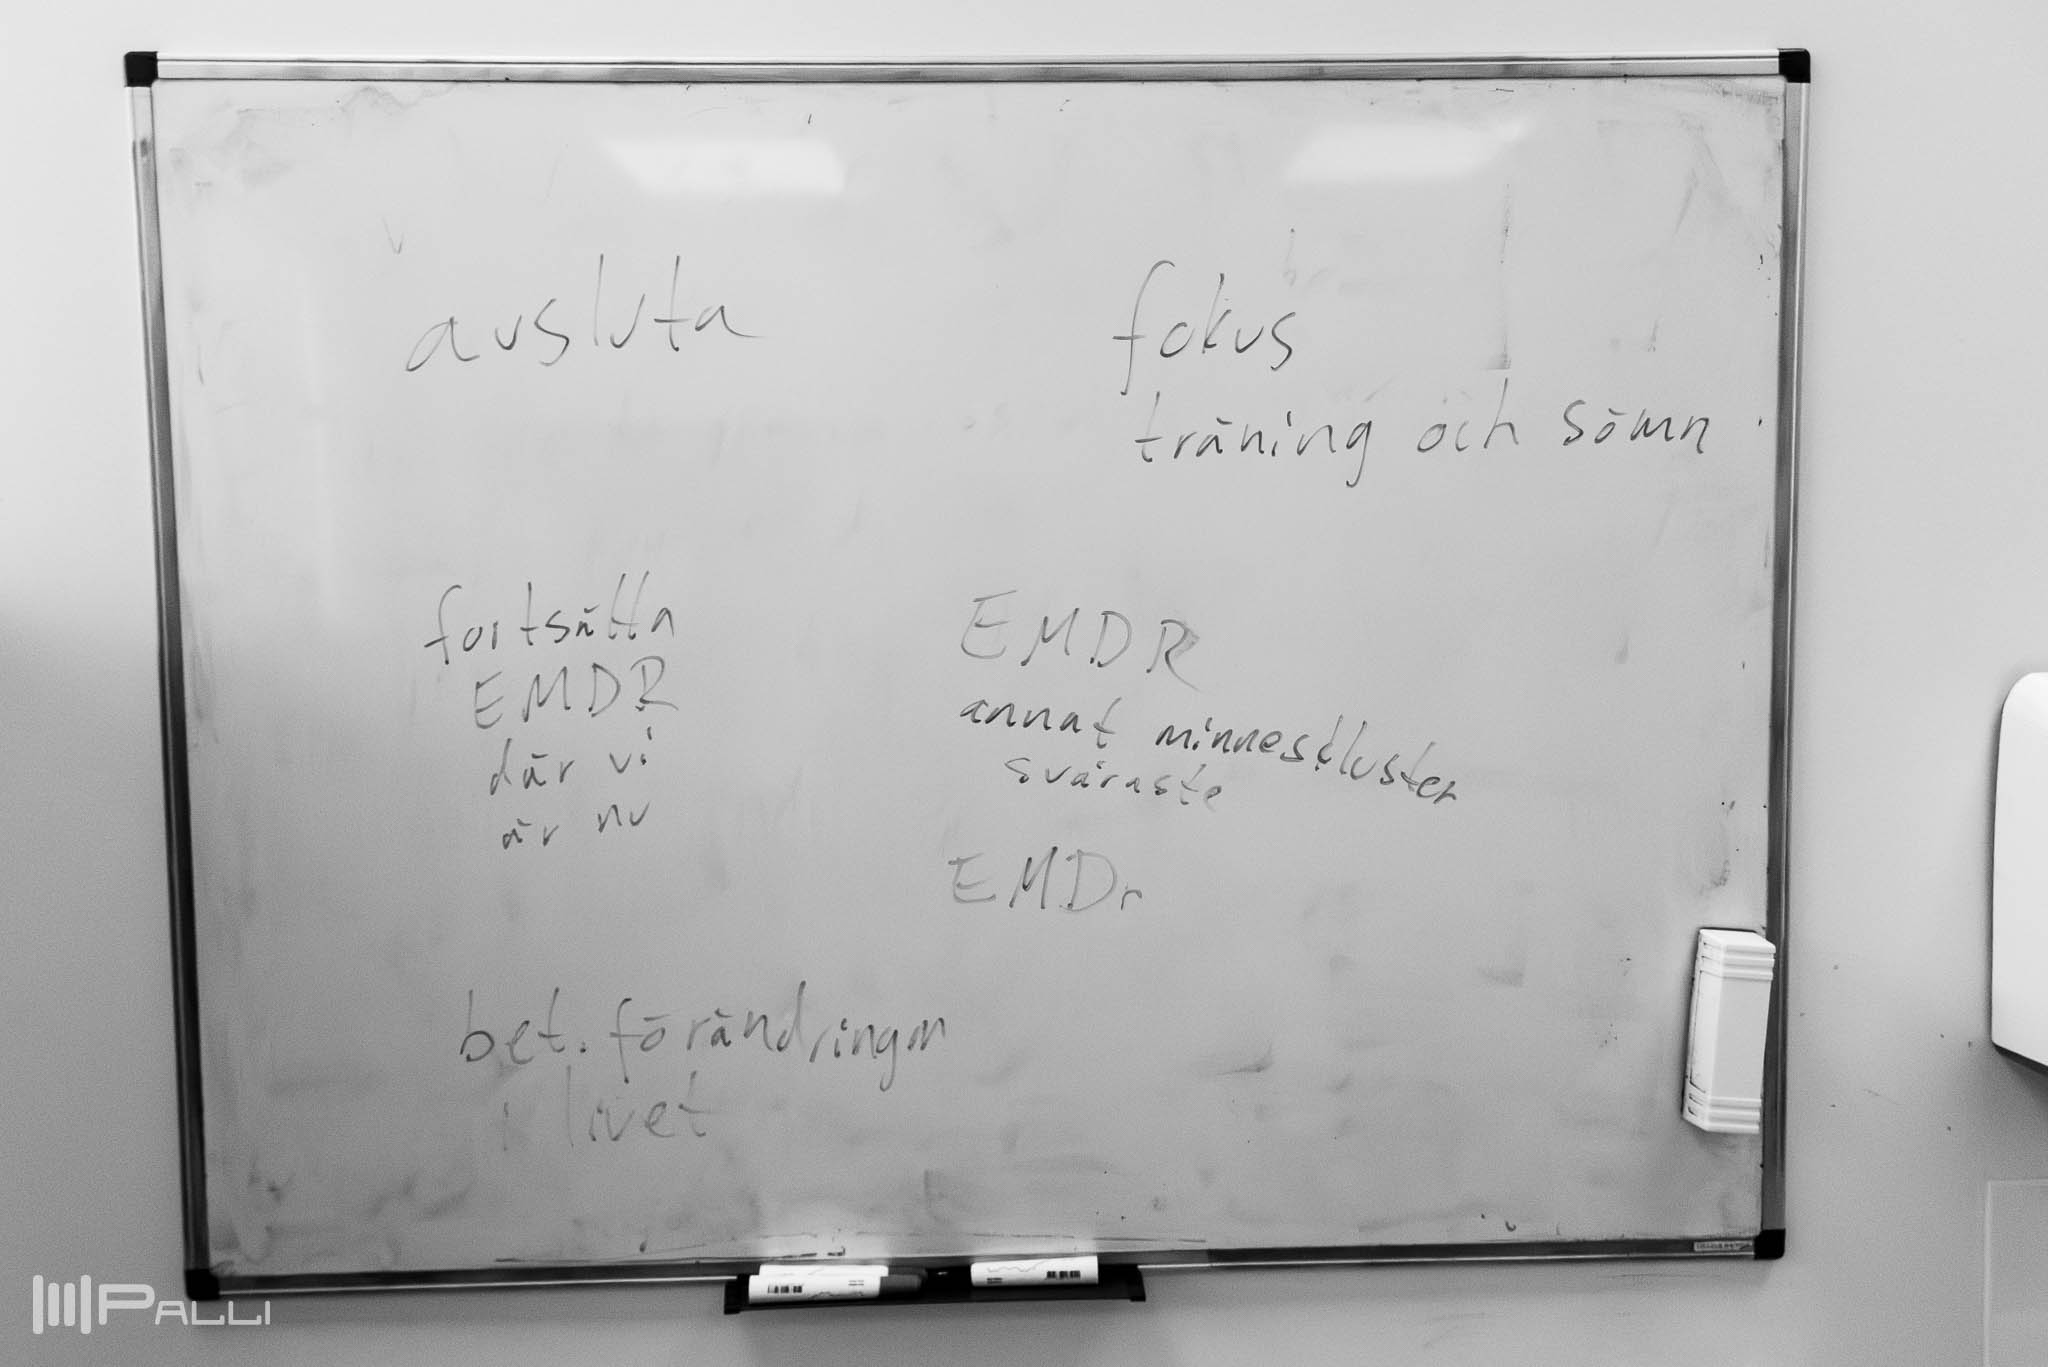 avsluta
fokus
träning och sömn
fortsätta
EMDR
där vi
är nu
EMDR
annat minneskluster
svåraste
EMDr
bet. förändringar
i livet
PALLI